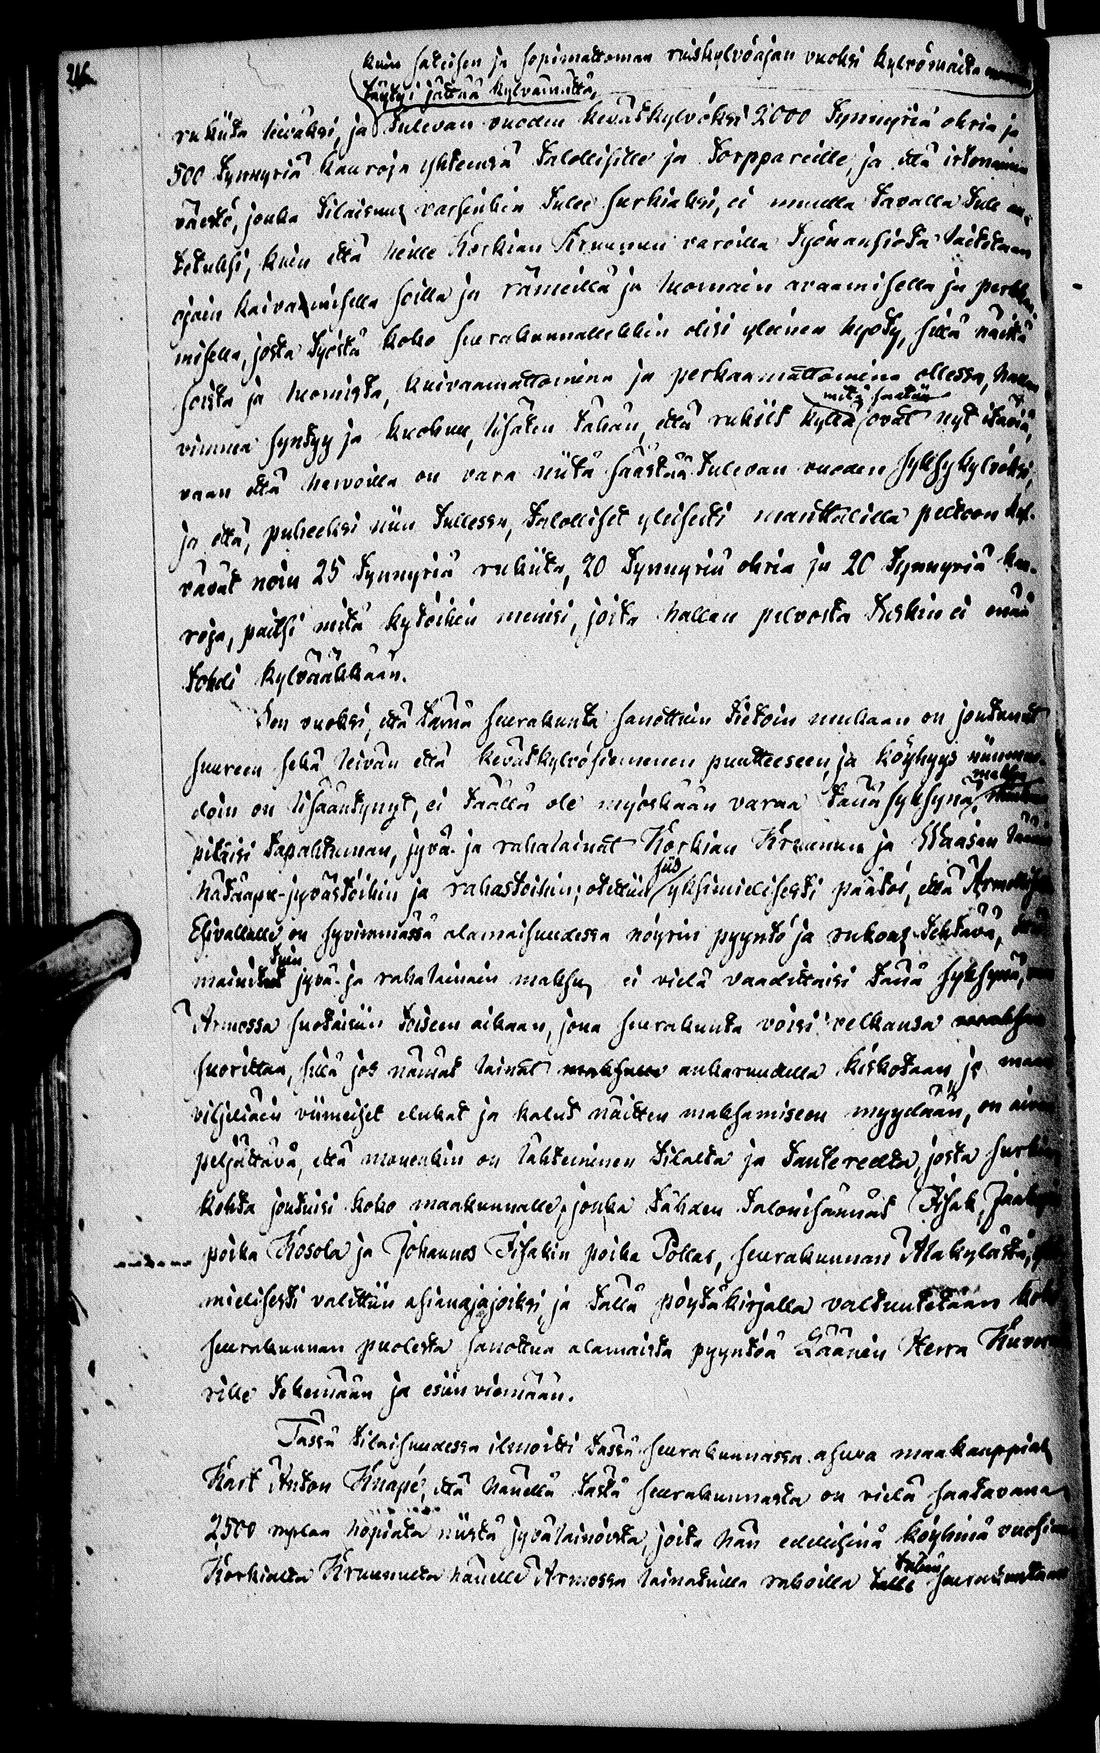 kuin sateisen ja sopimattoman ruiskylvöajan vuoksi kylvömaita
täytyi jättää kylvämättä,
rukiita leiväksi, ja tulevan vuoden kevätkylvöksi 2000 tynnyriä ohria ja
500 tynnyriä kauroja yhteensä talollisille ja torppareille, ja että irtonainen
väestö, jonka tilaisuus varsinkin tulee surkiaksi, ei muulla tavalla tule au-
tetuksi, kuin että heille Korkian Kruunun varoilla työnansiota laitetaan
ojain kaivamisella soilla ja rämeillä ja luomain avaamisella ja perkaa-
misella, josta työstä koko seurakunnallekkin olisi yleinen hyöty, sillä näistä
soista ja luomista, kuivaamattomina ja perkaamattomina ollessa, hallan
vimma syntyy ja kuohuu, lisäten tähän, että rukiit kyllä ovat nyt itäviä,
mitä saatiin
vaan että harvoilla on vara niitä säästää tulevan vuoden syksykylvöksi,
ja että, puheeksi niin tullessa, talolliset yleisesti manttalilla peltoon kyl-
vävät noin 25 tynnyriä rukiita, 20 tynnyriä ohria ja 20 tynnyriä kau-
roja, paitsi mitä kytöihin menisi, joita hallan pelvosta tuskin ei enää
tohdi kylvääkkään.
Sen vuoksi, että tämä seurakunta sanottuin tietoin mukaan on joutunut
suureen sekä leivän että kevätkylvösiemenen puutteeseen, ja köyhyys
doin on lisääntynyt, ei täällä ole myöskään varaa tänä syksynä, maksaa
pitäisi tapahtuman, jyvä- ja rahalainat Korkian Kruunun ja Waasan läänin
hätäapu-jyvästöihin ja rahastoihin; otettiin siis yksimielisesti päätös, että Armollisen
Esivallalle on syvimmässä alamaisuudessa nöyrin pyyntö ja rukous tehtävä, että
mainittuin jyvä- ja rahalainain maksu ei vielä vaadittaisi tänä syksynä, vaan
Armossa suotaisiin toiseen aikaan, jona seurakunta voisi velkansa
suorittaa, sillä jos nämät lainat ankaruudella kiskotaan, ja maan
viljeliäin viimeiset elukat ja kalut näitten maksamiseen myydään, on aivan
peljättävä, että monenkin on lähteminen tilalta ja tantereelta, josta surkia
kohta joutuisi koko maakunnalle, jonka tähden talonisännät Iisak Jaakopin
poika Kosola ja Johannes Iisakin poika Pollas, seurakunnan Alakylästä, yksi-
mielisesti valittiin asianajajoiksi, ja tällä pöytäkirjalla valtuutetaan koko
seurakunnan puolesta sanottua alamaista pyyntöä Läänin Herra Kuvernö-
rille tekemään ja esiinviemään.
Tässä tilaisuudessa ilmoitti tässä seurakunnassa asuva maakauppias
Karl Anton Knapé, että hänellä tästä seurakunnasta on vielä saatavana
2,500 ruplaa hopiata niistä jyvälainoista, joita hän edellisinä köyhinä vuosina
Korkialta Kruunulta hänelle Armossa lainatuilla rahoilla tähän seurakuntaan